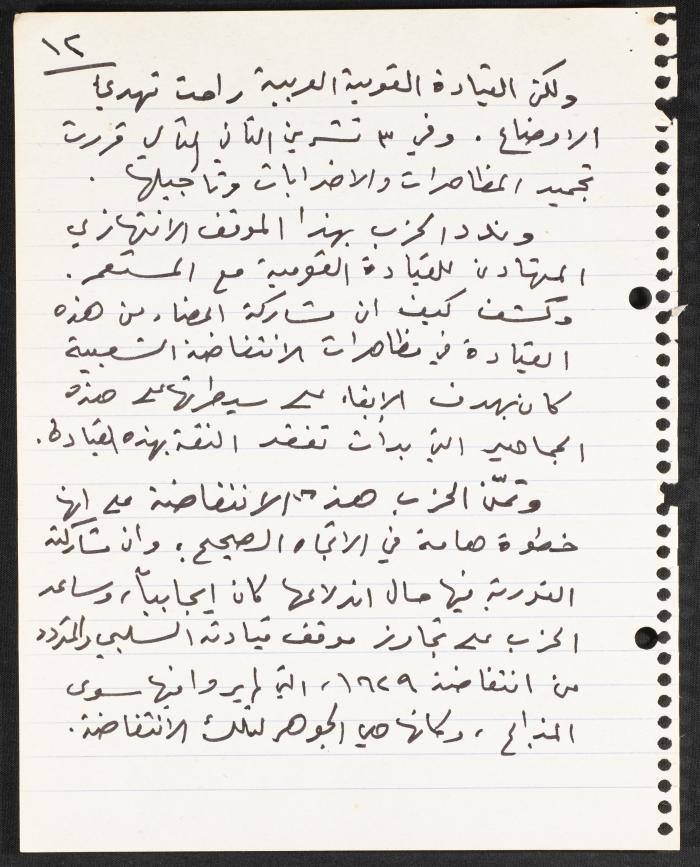 ١٢
ولكن القيادة القومية العربية راحت تهدئ
الاوضاع . وفي ٣ تشرين الثاني التالي قررت
تجميد المظاهرات والاضرابات وتأجيلها .
وندد الحزب بهذا الموقف الانتهازي
المتهادن للقيادة القومية مع المستعمر .
وكشف كيف ان مشاركة اعضاء من هذه
القيادة في مظاهرات الانتفاضة الشعبية
كان بهدف الابقاء على سيطرتها على هذه
الجماهير التي بدأت تفقد الثقة بهذه القيادة .
وثمّن الحزب هذه الانتفاضة على انها
خطوة هامة في الاتجاه الصحيح ، وان مشاركته
الفورية فيها حال اندلاعها كان إيجابياً ، وساعد
الحزب على تجاوز موقف قيادته السلبي والمتردد
من انتفاضة ١٩٢٩ ، التي لم يروا فيها سوى
المذابح ، وكأنها هي الجوهر لتلك الانتفاضة .